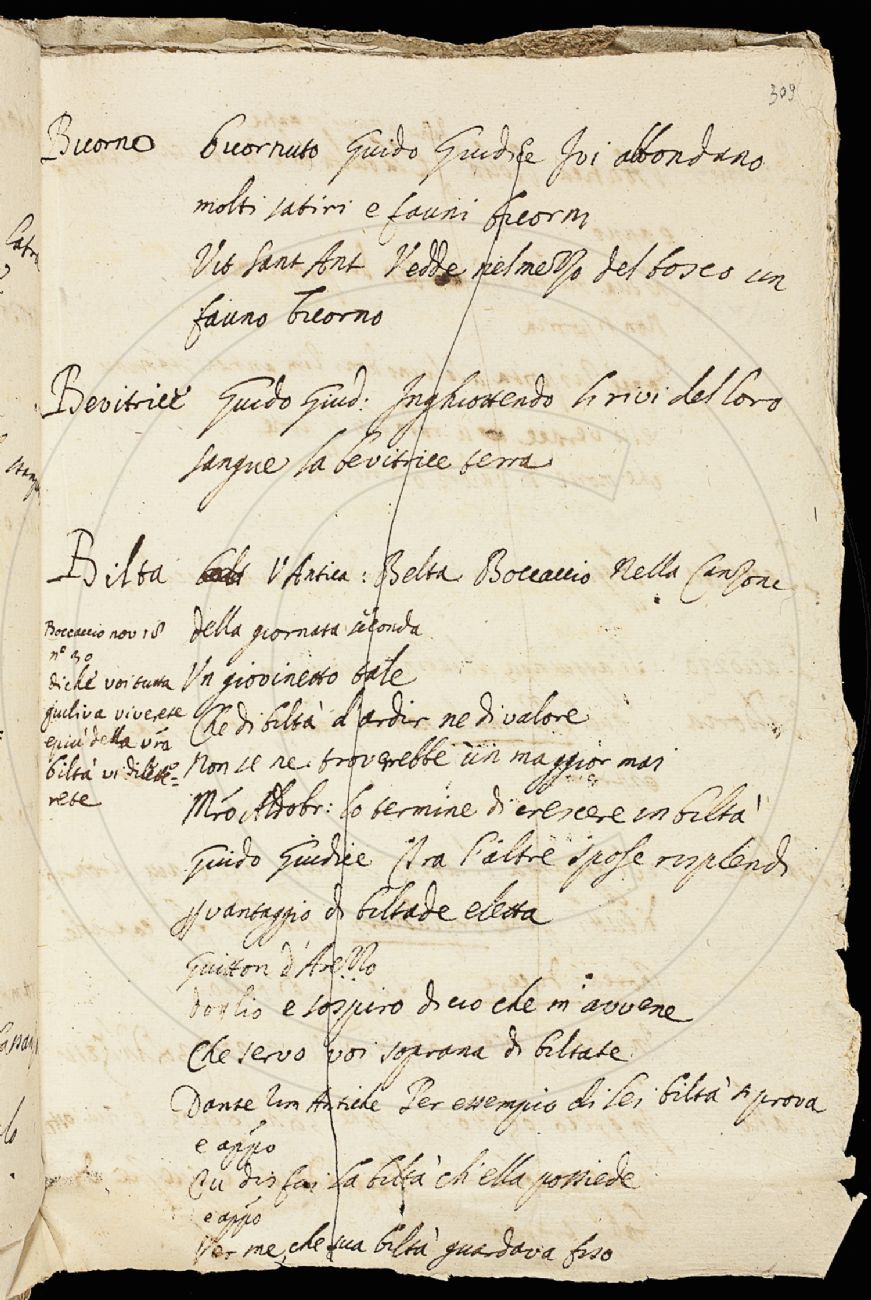 309
Bicorno bicornuto Guido Giudice Ivi abbondano
molti satiri e fauni bicorni
Vit Sant Ant Vedde nel mezzo del bosco un
fauno bicorno
Bevitrice Guido Giud: Inghiottendo li rivi del loro
sangue la bevitrice terra
Bilta V'Antica: Belta Boccaccio Nella Canzone
della giornata seconda
Un giovinetto tale
Che di biltà d'ardir ne di valore
Non se ne troverebbe un maggior mai
Mro Aldobr: lo termine di crescere in biltà
Guido Giudice Tra l'altre spose risplendi
vantaggio di biltade eletta
Guitton d'Arezzo
Doglio e sospiro di cio che m'avvene
Che servo voi soprana di biltate
Dante Rim Antiche Per essempio di lei biltà si prova
e appo
Tu disfai la biltà ch'ella possiede
e appo
Per me, che sua biltà guardava fiso
Boccaccio nov 18
n° 30
di che voi tutta
giuliva viverete
e piu della vra
biltà vi dilette=
rete